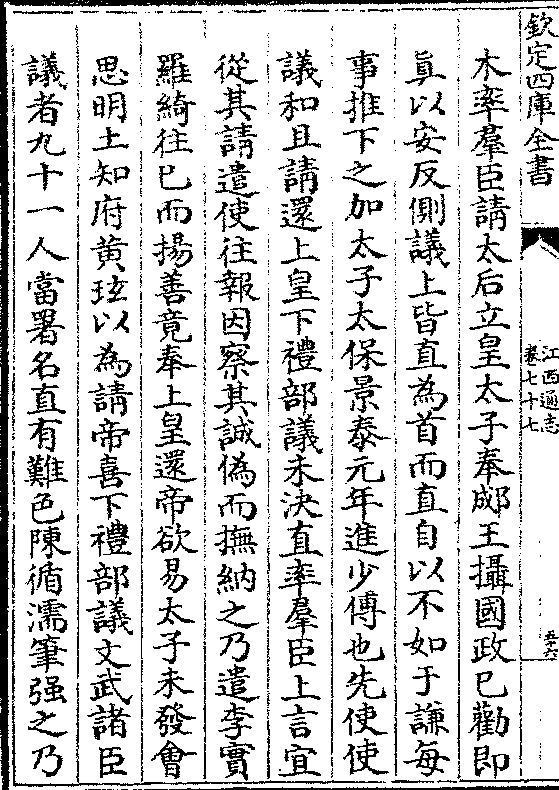 欽定四庫全書
江西通志
卷七十七
五六
木率羣臣請太后立皇太子奉郕王攝國政已勸即
真以安反側議上皆直為首而直自以不如于謙每
事推下之加太子太保景泰元年進少傅也先使使
議和且請還上皇下禮部議未決直率羣臣上言宜
從其請遣使往報因察其誠偽而撫納之乃遣李實
羅綺往已而揚善竟奉上皇還帝欲易太子未發會
思明土知府黄㺬以為請帝喜下禮部議文武諸臣
議者九十一人當署名直有難色陳循濡筆强之乃